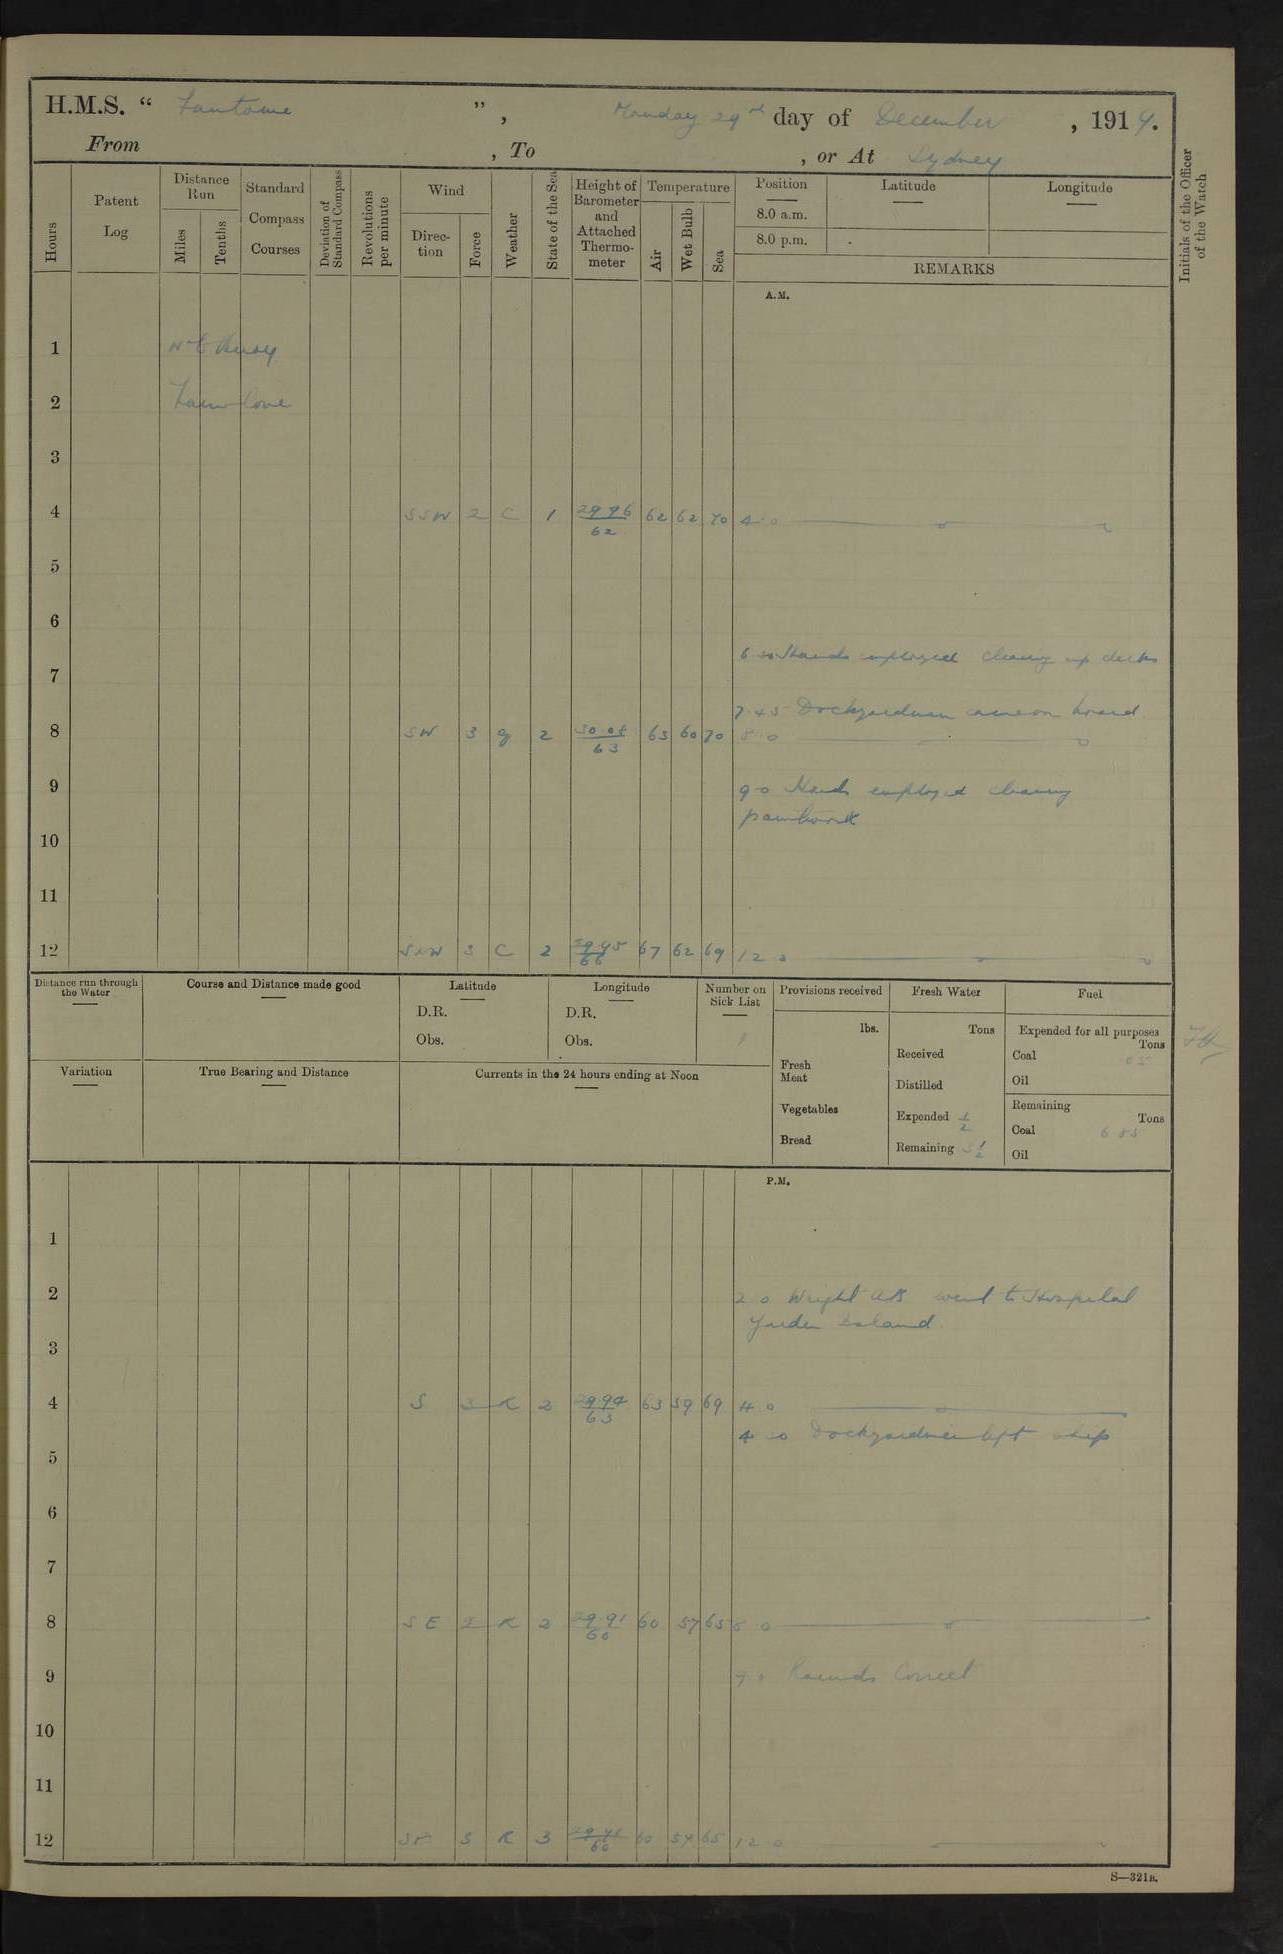 H.M.S. " Fantome ", Monday 29th day of December, 1914.
From , To , or At Sydney
Hours
Patent Log
Distance Run
Miles
Tenths
Standard Compass Courses
Deviation of Standard Compass
Revolutions per minute
Wind
Direction
Force
Weather
State of the Sea
Height of Barometer and Attached Thermometer
Temperature
Air
Wet Bulb
Sea
Position
Latitude
Longitude
8.0 a.m.
8.0 p.m.
REMARKS
Initials of the Officer of the Watch
A.M.
1 Buoy
2 Farm Cove
3
4 SSW 2 C 1 29 96 / 62 62 62 70 4.0
5
6
6 30 Hands employed cleaning up decks
7
7.45 Dockyardmen came on board
8 SW 3 g 2 63 63 60 70 8.0
9 9 0 Hands employed cleaning
paintwork
10
11
12 3 C 2 29.95 / 66 67 62 69 12 0
Distance run through the Water
Course and Distance made good
Latitude
D.R.
Obs.
Longitude
D.R.
Obs.
Number on Sick List
1
Provisions received
lbs.
Fresh Meat
Vegetables
Bread
Fresh Water
Tons
Received
Distilled
Expended 1/2
Remaining
Fuel
Expended for all purposes
Tons
Coal
Oil
Remaining
Tons
Coal
Oil
Variation
True Bearing and Distance
Currents in the 24 hours ending at Noon
P.M.
1
2 2 0 Wright AB went to Hospital
Garden Island
3
4 S 3 K 2 29.94 / 63 63 59 69 4 0
4 30 Dockyardmen left ship
5
6
7
8 SE K 2 29.91 / 60 60 57 65 8 0
9 Rounds Correct
10
11
12 SE K 3 60 60 65 12 0
S—321B.